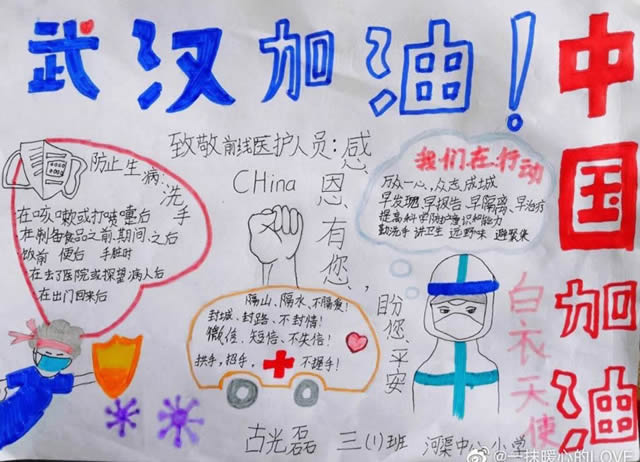 武汉加油！
中国加油
致敬前线医护人员：
CHina
感恩有您，
防止生病：洗手
在咳嗽或打喷嚏后
在制备食品之前、期间、之后
饭前 便后 手脏时
在去了医院或探望病人后
在出门回来后
我们在行动
万众一心，众志成城
早发现、早报告、早隔离、早治疗
提高科学防护意识和能力
勤洗手 讲卫生 远野味 避聚集
隔山、隔水、不隔爱！
封城、封路、不封情！
微信、短信、不失信！
拱手，招手， 不握手！
盼您、平安
白衣天使
古光磊 三(1)班 河渠中心小学
@一抹暖心的LOVE